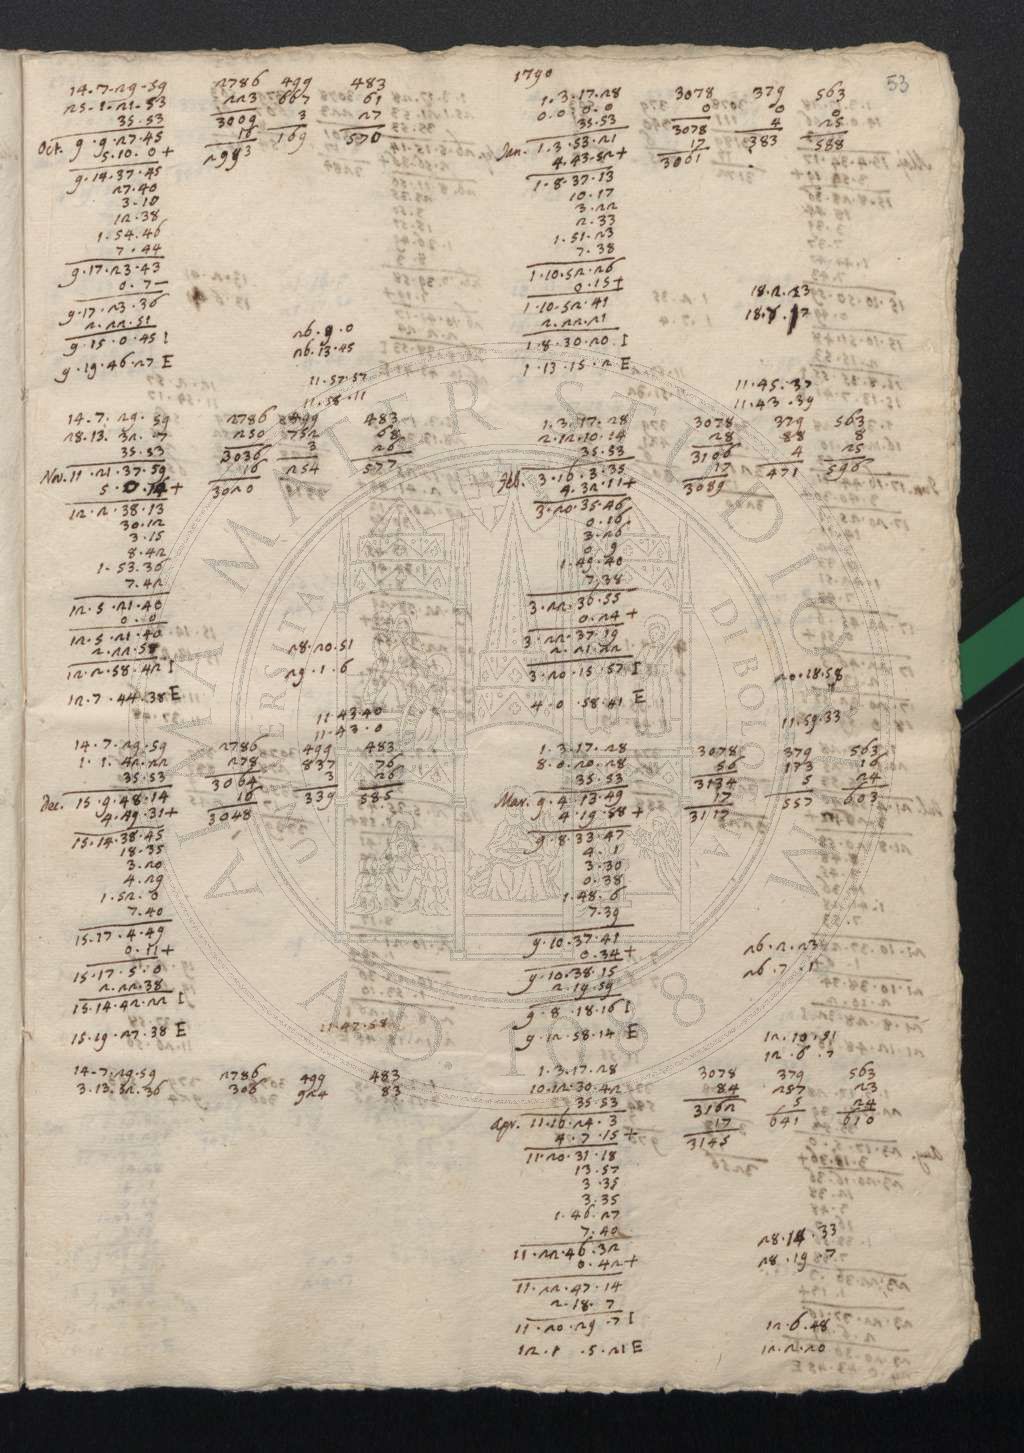 53
14.7.29.59 2786 499 483
25.1.21.53 223 667 61
35.53 3009 3 27
Oct. 9.9.27.45 16 169 570
5.10.0+ 2993
9.14.37.45
27.40
3.10
12.38
1.54.46
7.44
9.17.23.43
0.7-
9.17.23.36
2.22.51
9.15.0.45 I 26.9.0
26.13.45
9.19.46.27 E
11.57.57
11.58.11
14.7.29.59 2786 499 483
28.13.32.7 250 752 68
35.53 3036 3 26
Nov. 11.21.37.59 16 254 577
5.0.14+ 3020
12.2.38.13
30.12
3.15
8.42
1.53.36
7.42
12.5.21.40
0.0
12.5.21.40
2.22.58 28.20.51
12.2.58.42 I 29.1.6
12.7.44.38 E
11.43.40
11.43.0
14.7.29.59 2786 499 483
1.1.42.22 278 837 76
35.53 3064 3 26
Dec. 15.9.48.14 16 339 585
4.49.31+ 3048
15.14.38.45
18.35
3.20
4.29
1.52.0
7.40
15.17.4.49
0.11+
15.17.5.0
2.22.38
15.14.42.22 I
15.19.27.38 E 11.47.58
14.7.29.59 2786 499 483
3.13.32.36 306 924 83
1790
1.3.17.28 3078 379 563
0.0.0.0 0 0 0
35.53 3078 4 25
Jan. 1.3.53.21 17 383 588
4.43.52+ 3061
1.8.37.13
10.17
3.22
2.33
1.51.23
7.38
1.10.52.26
0.15+ 18.2.23
1.10.52.41 18.7.17
2.22.21
1.8.30.20 I
1.13.15.2 E
11.45.37
11.43.39
1.3.17.28 3078 379 563
2.12.10.14 28 88 8
35.53 3106 4 25
Feb. 3.16.3.35 17 471 596
4.32.11+ 3089
3.20.35.46
0.16
3.26
0.9
1.49.40
7.38
3.22.36.55
0.24+
3.22.37.19
2.21.22
3.20.15.57 I 20.18.58
4.0.58.41 E
11.59.33
1.3.17.28 3078 379 563
8.0.20.28 56 173 16
35.53 3134 5 24
Mar. 9.4.13.49 17 557 603
4.19.58+ 3117
9.8.33.47
4.1
3.30
0.38
1.48.6
7.39
9.10.37.41
0.34+ 26.2.23
9.10.38.15 26.7.1
2.19.59
9.8.18.16 I
9.12.58.14 E 12.10.31
12.6.7
1.3.17.28 3078 379 563
10.12.30.42 84 257 23
35.53 3162 5 24
Apr. 11.16.24.3 17 641 610
4.7.15+ 3145
11.20.31.18
13.57
3.35
3.35
1.46.27
7.40
11.22.46.32 28.14.33
0.42+ 28.19.7
11.22.47.14
2.18.7
11.20.29.7 I 12.6.48
12.1.5.21 E 12.2.20
ALMA MATER STUDIORUM
A.D. 1088